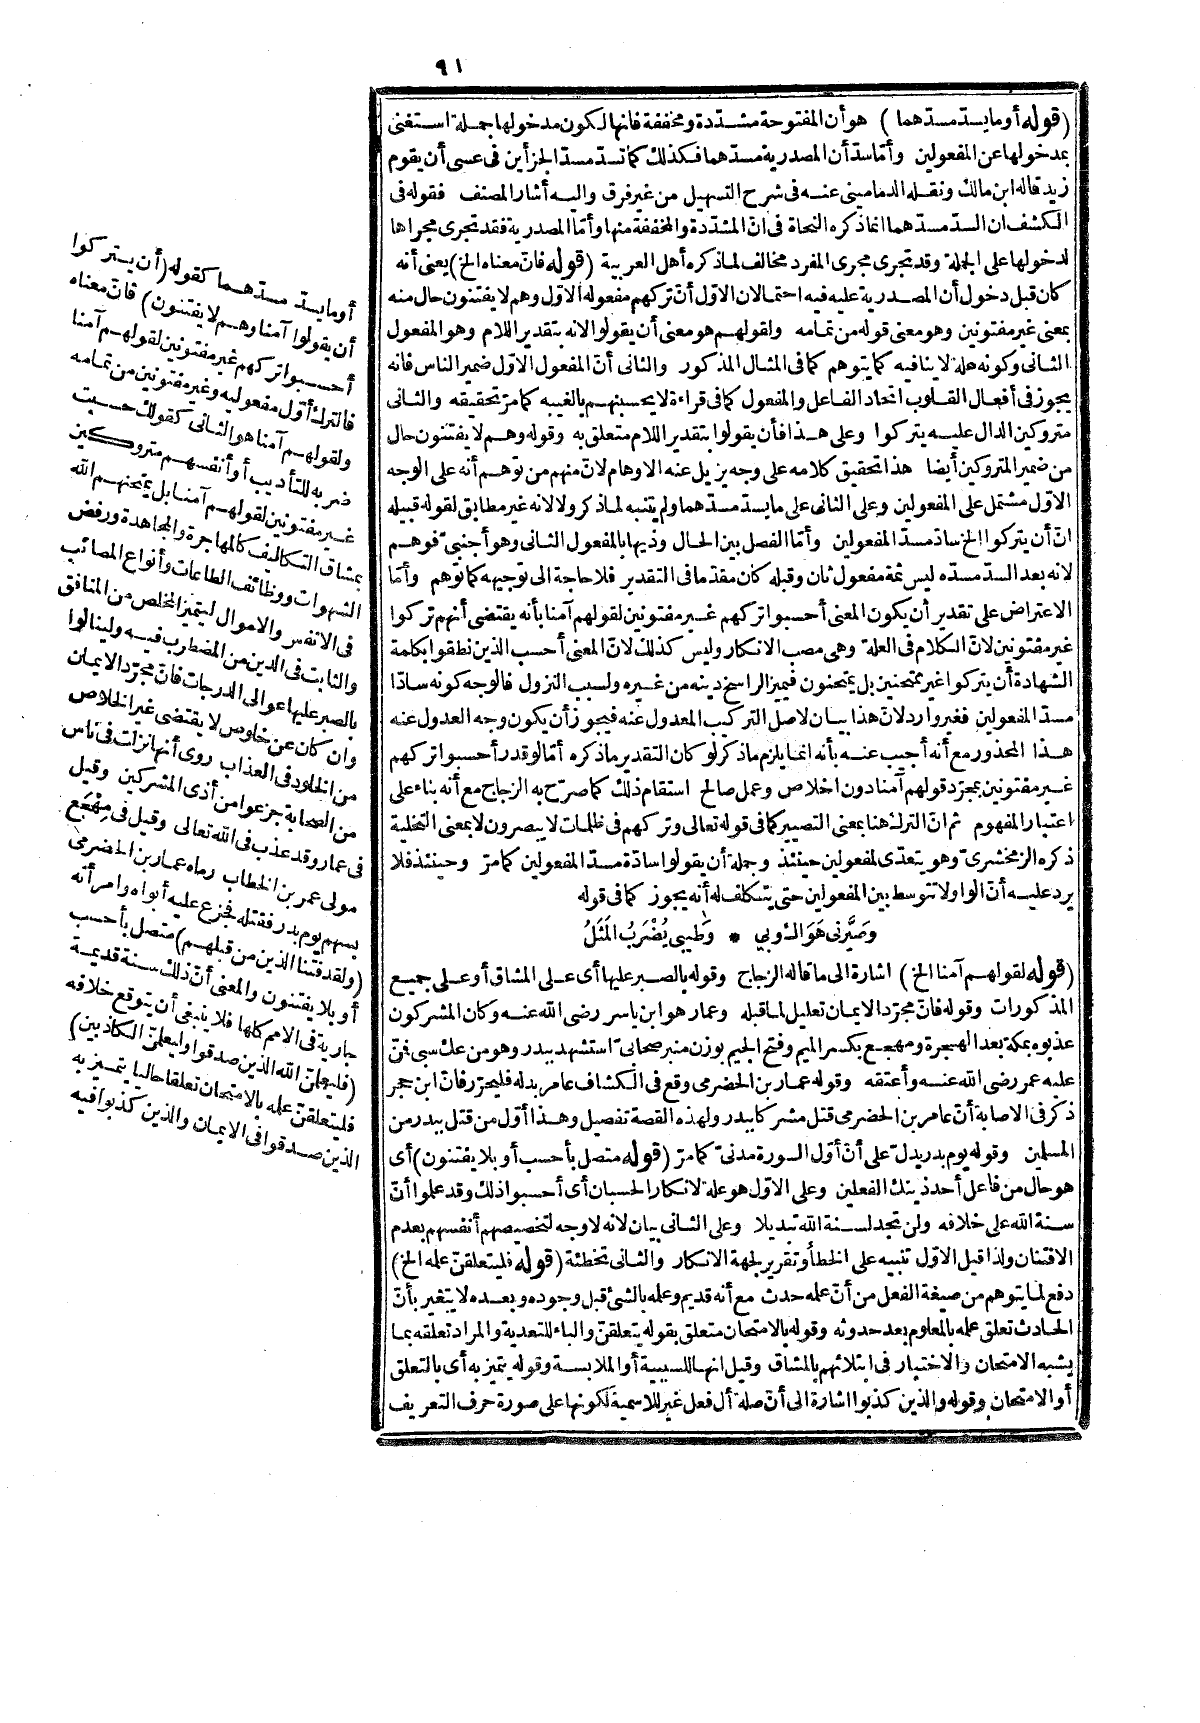 ٩١
(قوله أو ما يسدّ مسدّهما) هو أن المفتوحة مشدّدة ومخففة فانها لكون مدخولها جملة استغنى
بمدخولها عن المفعولين وأمّا سدّ أن المصدرية مسدّهما فكذلك كما تسدّ مسدّ الجزأين في عسى أن يقوم
زيد قاله ابن مالك ونقله الدماميني عنه في شرح التسهيل من غير فرق واليه أشار المصنف فقوله في
الكشف ان السدّ مسدّهما انما ذكره النحاة في انّ المشدّدة والمخففة منها وأمّا المصدرية فقد تجرى مجراها
لدخولها على الجملة وقد تجرى مجرى المفرد مخالف لما ذكره أهل العربية (قوله فانّ معناه الخ) يعني أنه
كان قبل دخول أن المصدرية عليه فيه احتمالان الاوّل أنّ تركهم مفعوله الاوّل وهم لا يفتنون حال منه
بمعنى غير مفتونين وهو معنى قوله من تمامه ولقولهم هو معنى أن يقولوا لانه بتقدير اللام وهو المفعول
الثاني وكونه علة لا ينافيه كما يتوهم كما في المثال المذكور والثاني أنّ المفعول الاوّل ضمير الناس فانه
يجوز في أفعال القلوب اتحاد الفاعل والمفعول كما في قراءة لا يحسبنهم بالغيبة كما مرّ تحقيقه والثاني
متروكين الدال عليه يتركوا وعلى هذا فأن يقولوا بتقدير اللام متعلق به وقوله وهم لا يفتنون حال
من ضمير المتروكين أيضا هذا تحقيق كلامه على وجه يزيل عنه الاوهام لانّ منهم من توهم أنه على الوجه
الاوّل مشتمل على المفعولين وعلى الثاني على ما يسدّ مسدّهما ولم يتنبه لما ذكر ولا لانه غير مطابق لقوله قبيله
انّ أن يتركوا الخ سادّ مسدّ المفعولين وأمّا الفصل بين الحال وذيها بالمفعول الثاني وهو أجنبيّ فوهم
لانه بعد السدّ مسدّه ليس ثمة مفعول ثان وقبله كان مقدّما في التقدير فلا حاجة الى توجيهه كما توهم وأمّا
الاعتراض على تقدير أن يكون المعنى أحسبوا تركهم غير مفتونين لقولهم آمنا بأنه يقتضى أنهم تركوا
غير مفتونين لانّ الكلام في العلة وهي مصب الانكار وليس كذلك لانّ المعنى أحسب الذين نطقوا بكلمة
الشهادة أن يتركوا غير ممتحنين بل يمتحنون فيميز الراسخ دينه من غيره ولسبب النزول فالوجه كونه سادّا
مسدّ المفعولين فغير وارد لانّ هذا بيان لاصل التركيب المعدول عنه فيجوز أن يكون وجه العدول عنه
هذا المحذور مع أنه أجيب عنه بأنه انما يلزم ما ذكر لو كان التقدير ما ذكره أمّا لو قدر أحسبوا تركهم
غير مفتونين بمجرّد قولهم آمنا دون اخلاص وعمل صالح استقام ذلك كما صرّح به الزجاج مع أنه بناء على
اعتبار المفهوم ثم انّ الترك هنا بمعنى التصيير كما في قوله تعالى وتركهم في ظلمات لا يبصرون لا بمعنى التخلية
ذكره الزمخشريّ وهو يتعدّى لمفعولين حينئذ وجملة أن يقولوا سادّة مسدّ المفعولين كما مرّ وحينئذ فلا
يرد عليه أنّ الواو لا تتوسط بين المفعولين حتى يتكلف له أنه يجوز كما في قوله
وصَيَّرني هَوَاكَ وبي * وطِبي يُضْرَبُ المَثَلُ
(قوله لقولهم آمنا الخ) اشارة الى ما قاله الزجاج وقوله بالصبر عليها أى على المشاق أو على جميع
المذكورات وقوله فانّ مجرّد الايمان تعليل لما قبله وعمار هو ابن ياسر رضى الله عنه وكان المشركون
عذبوه بمكة بعد الهجرة ومهجع بكسر الميم وفتح الجيم بوزن منبر صحابيّ استشهد ببدر وهو من عك سبي فمنّ
عليه عمر رضى الله عنه وأعتقه وقوله عمار بن الحضرمي وقع في الكشاف عامر بدله فليحرّر فانّ ابن حجر
ذكر في الاصابة أنّ عامر بن الحضرمي قتل مشركا ببدر ولهذه القصة تفصيل وهذا أوّل من قتل ببدر من
المسلمين وقوله يوم بدر يدلّ على أنّ أوّل السورة مدنيّ كما مرّ (قوله متصل بأحسب أو بلا يفتنون) أى
هو حال من فاعل أحد ذينك الفعلين وعلى الاوّل هو علة لانكار الحسبان أى أحسبوا ذلك وقد علموا أنّ
سنة الله على خلافه ولن تجد لسنة الله تبديلا وعلى الثاني بيان لانه لا وجه لتخصيصهم أنفسهم بعدم
الافتتان ولذا قيل الاوّل تنبيه على الخطأ وتقرير لجهة الانكار والثاني تخطئة (قوله فليتعلقنّ علمه الخ)
دفع لما يتوهم من صيغة الفعل من أنّ علمه حدث مع أنه قديم وعلمه بالشئ قبل وجوده وبعده لا يتغير بأنّ
الحادث تعلق علمه بالمعلوم بعد حدوثه وقوله بالامتحان متعلق بقوله يتعلقنّ والباء للتعدية والمراد تعلقه بما
يشبه الامتحان والاختبار في ابتلائهم بالمشاق وقيل انها للسببية أو الملابسة وقوله يتميز به أى بالتعلق
أو الامتحان وقوله والذين كذبوا اشارة الى أنّ صلة أل فعل غير للاسمية لكونها على صورة حرف التعريف
أو ما يسدّ مسدّهما كقوله (أن يتركوا
أن يقولوا آمنا وهم لا يفتنون) فانّ معناه
أحسبوا تركهم غير مفتونين لقولهم آمنا
فالترك أوّل مفعوليه وغير مفتونين من تمامه
ولقولهم آمنا هو الثاني كقولك حسبت
ضربه للتأديب أو أنفسهم متروكين
غير مفتونين لقولهم آمنا بل يمتحنهم الله
بمشاق التكاليف كالمهاجرة والمجاهدة ورفض
الشهوات ووظائف الطاعات وأنواع المصائب
في الانفس والاموال ليتميز المخلص من المنافق
والثابت في الدين من المضطرب فيه ولينالوا
بالصبر عليها عوالي الدرجات فانّ مجرّد الايمان
وان كان عن خلوص لا يقتضى غير الخلاص
من الخلود في العذاب روى أنها نزلت في ناس
من الصحابة جزعوا من أذى المشركين وقيل
في عمار وقد عذب في الله تعالى وقيل في مِهْجَع
مولى عمر بن الخطاب رماه عمار بن الحضرميّ
بسهم يوم بدر فقتله فجزع عليه أبواه وامرأته
(ولقد فتنا الذين من قبلهم) متصل بأحسب
أو بلا يفتنون والمعنى أنّ ذلك سنة قديمة
جارية في الامم كلها فلا ينبغى أن يتوقع خلافه
(فليعلمنّ الله الذين صدقوا وليعلمنّ الكاذبين)
فليتعلقنّ علمه بالامتحان تعلقا حاليا يتميز به
الذين صدقوا في الايمان والذين كذبوا فيه